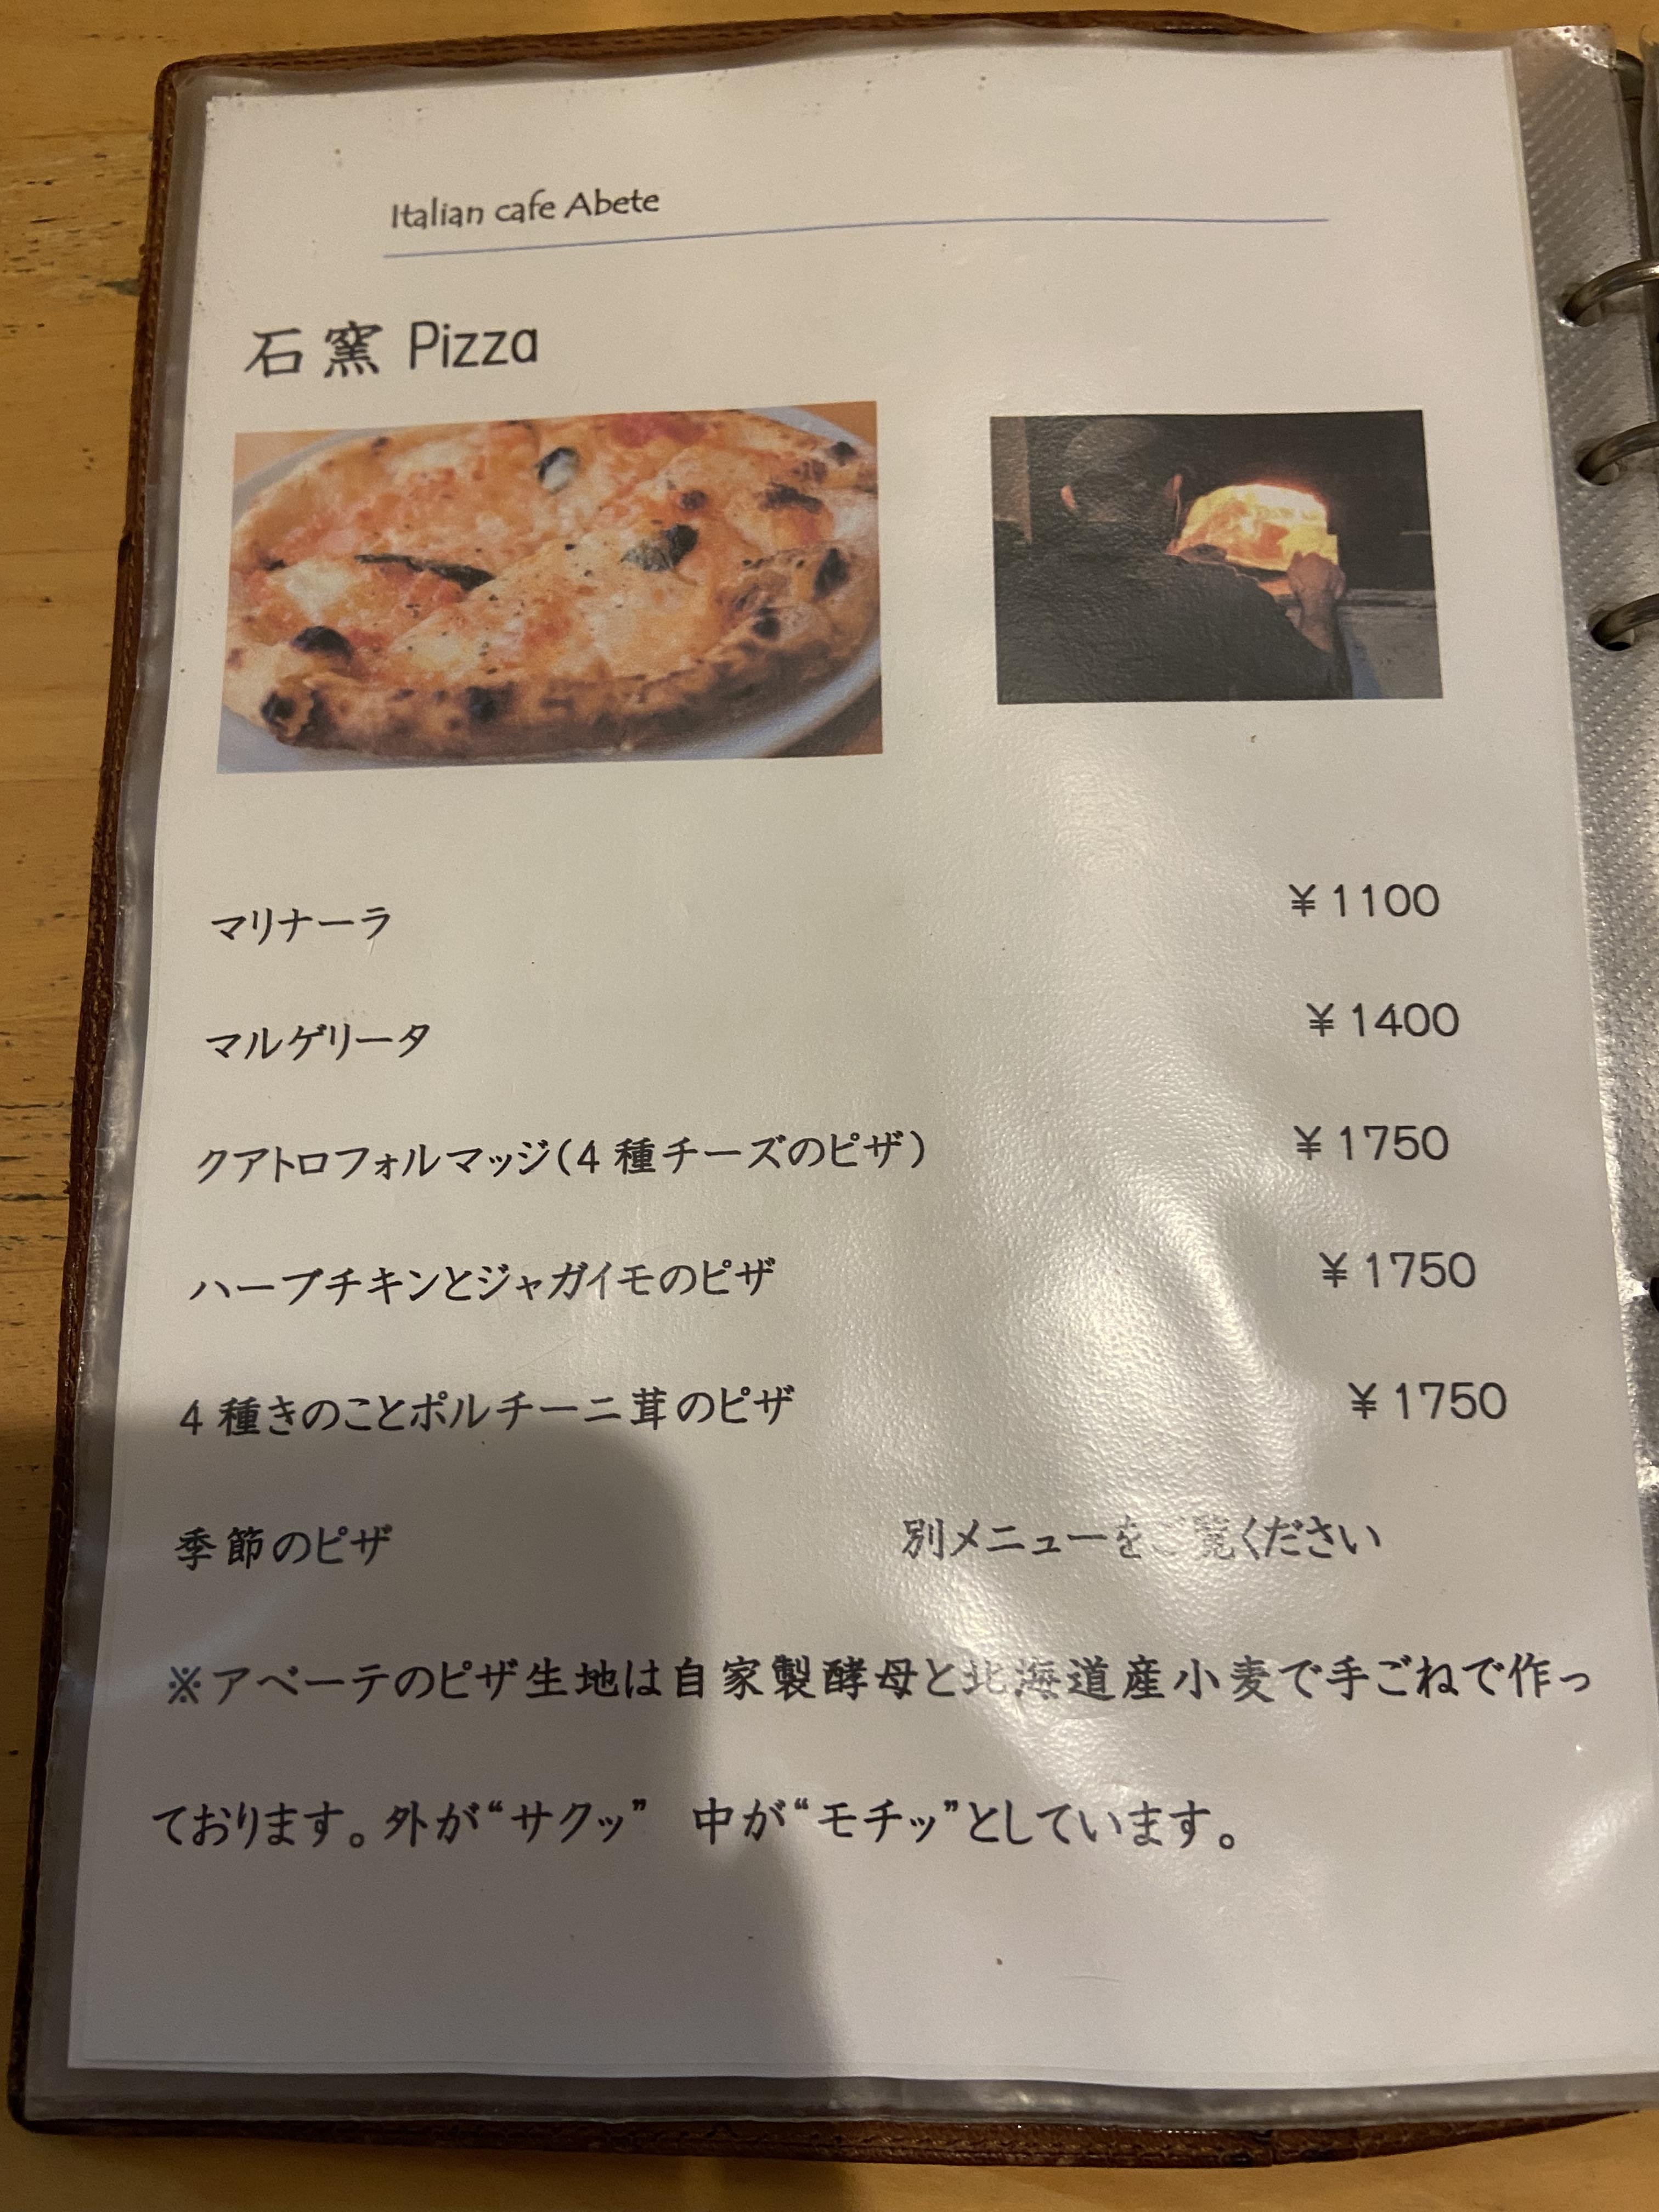 Italian cafe Abete
石窯 Pizza
マリナーラ ¥1100
マルゲリータ ¥1400
クアトロフォルマッジ(4種チーズのピザ) ¥1750
ハーブチキンとジャガイモのピザ ¥1750
4種きのことポルチーニ茸のピザ ¥1750
季節のピザ 別メニューをご覧ください
※アベーテのピザ生地は自家製酵母と北海道産小麦で手ごねで作っ
ております。外が“サクッ” 中が“モチッ”としています。